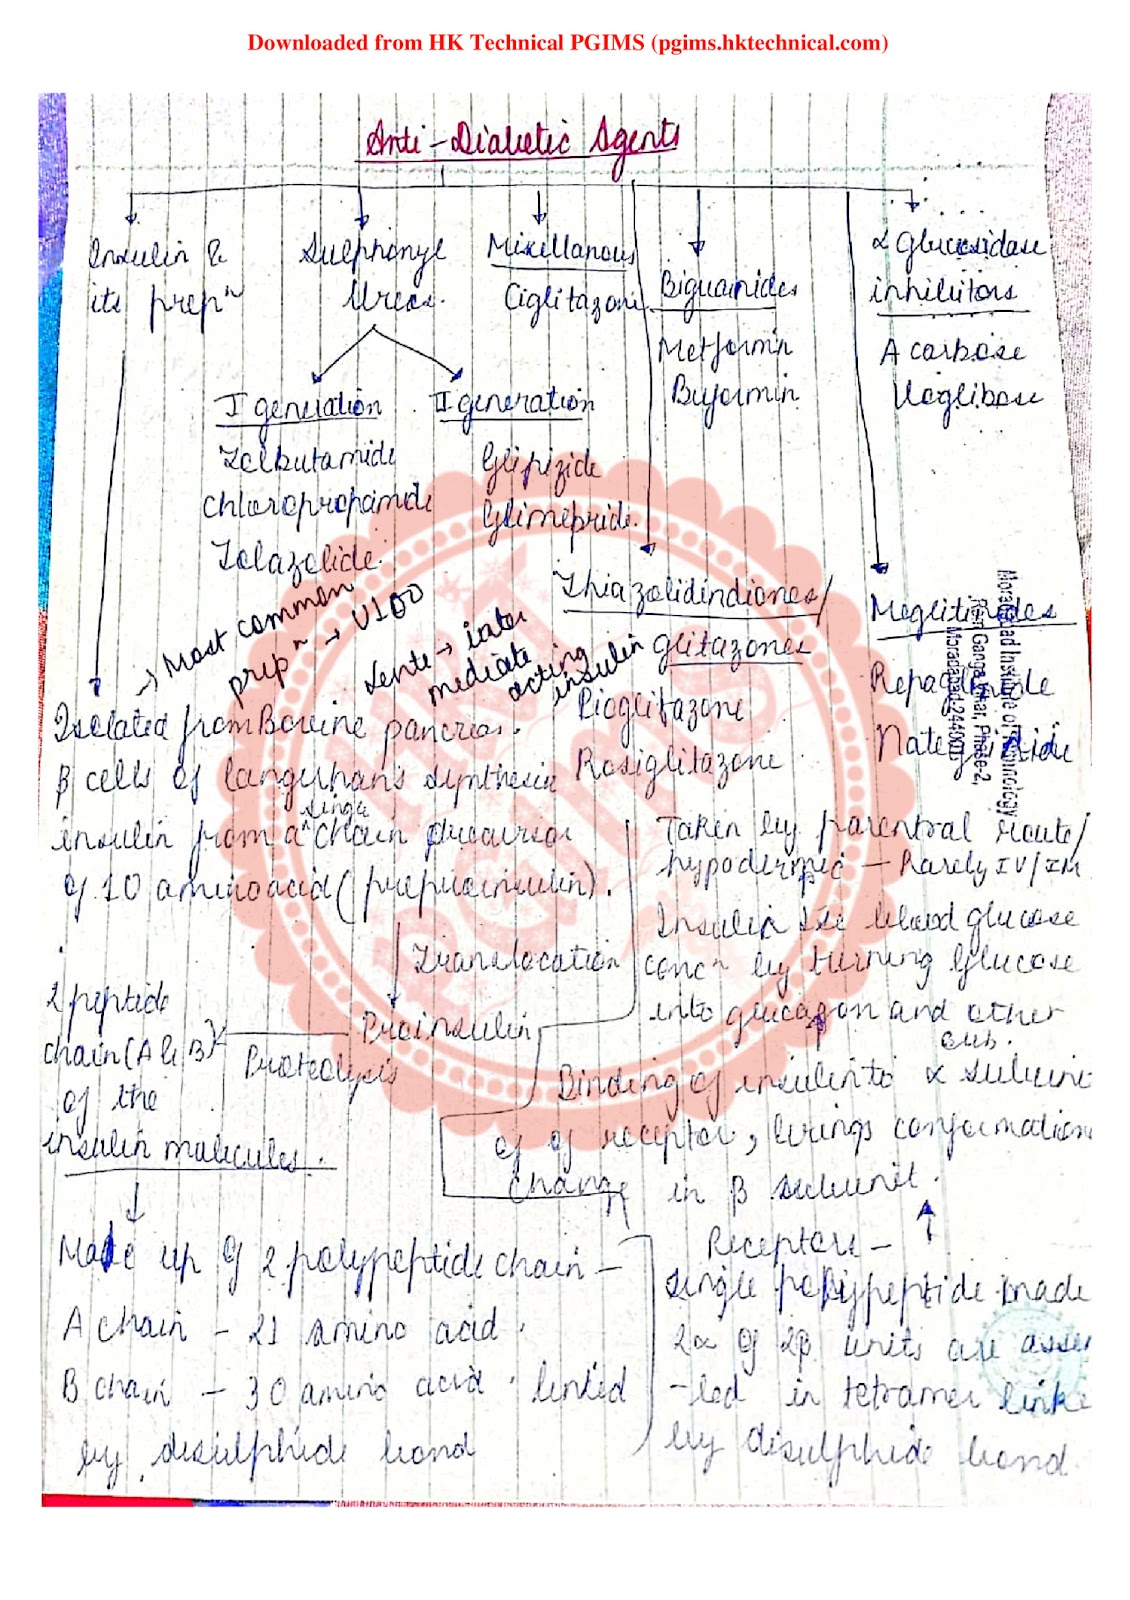 Downloaded from HK Technical PGIMS (pgims.hktechnical.com)
Anti-Diabetic Agents
Insulin &
its prepⁿ
Sulphonyl
Ureas.
I generation
Tolbutamide
Chloropropamide
Tolazolide.
II generation
Glipizide
Glimepride.
Miscellanous
Ciglitazone
Biguainides
Metformin
Buformin
α Glucosidase
inhibitors
Acarbose
Voglibose
Thiazolidindiones/
glitazones
Pioglitazone
Rosiglitazone
Meglitinides
Repaglinide
Nateglinide
Moradabad Institute of Technology
Ram Ganga Vihar, Phase-2,
Moradabad-244001
→ Most common
prepⁿ → U100
Lente → inter
mediate
acting
insulin
Isolated from Bovine pancreas.
β cells of langerhan's synthesis
insulin from a single chain precursor
of 110 aminoacid (preproinsulin).
Translocation
Proinsulin
Proteolysis
2 peptide
chain (A & B)
of the
insulin molecules.
Made up of 2 polypeptide chain –
A chain – 21 amino acid.
B chain – 30 amino acid. linked
by disulphide bond
Taken by parentral route/
hypodermic – Rarely IV/IM
Insulin ↓se blood glucose
concⁿ by turning Glucose
into glucagon and other
sub.
Binding of insulin to α subuni
of of receptor, brings conformation
change in β subunit.
Receptors –
single polypeptide made
2α of 2β units are assem
-led in tetramer linke
by disulphide bond.
HKT
PGIMS